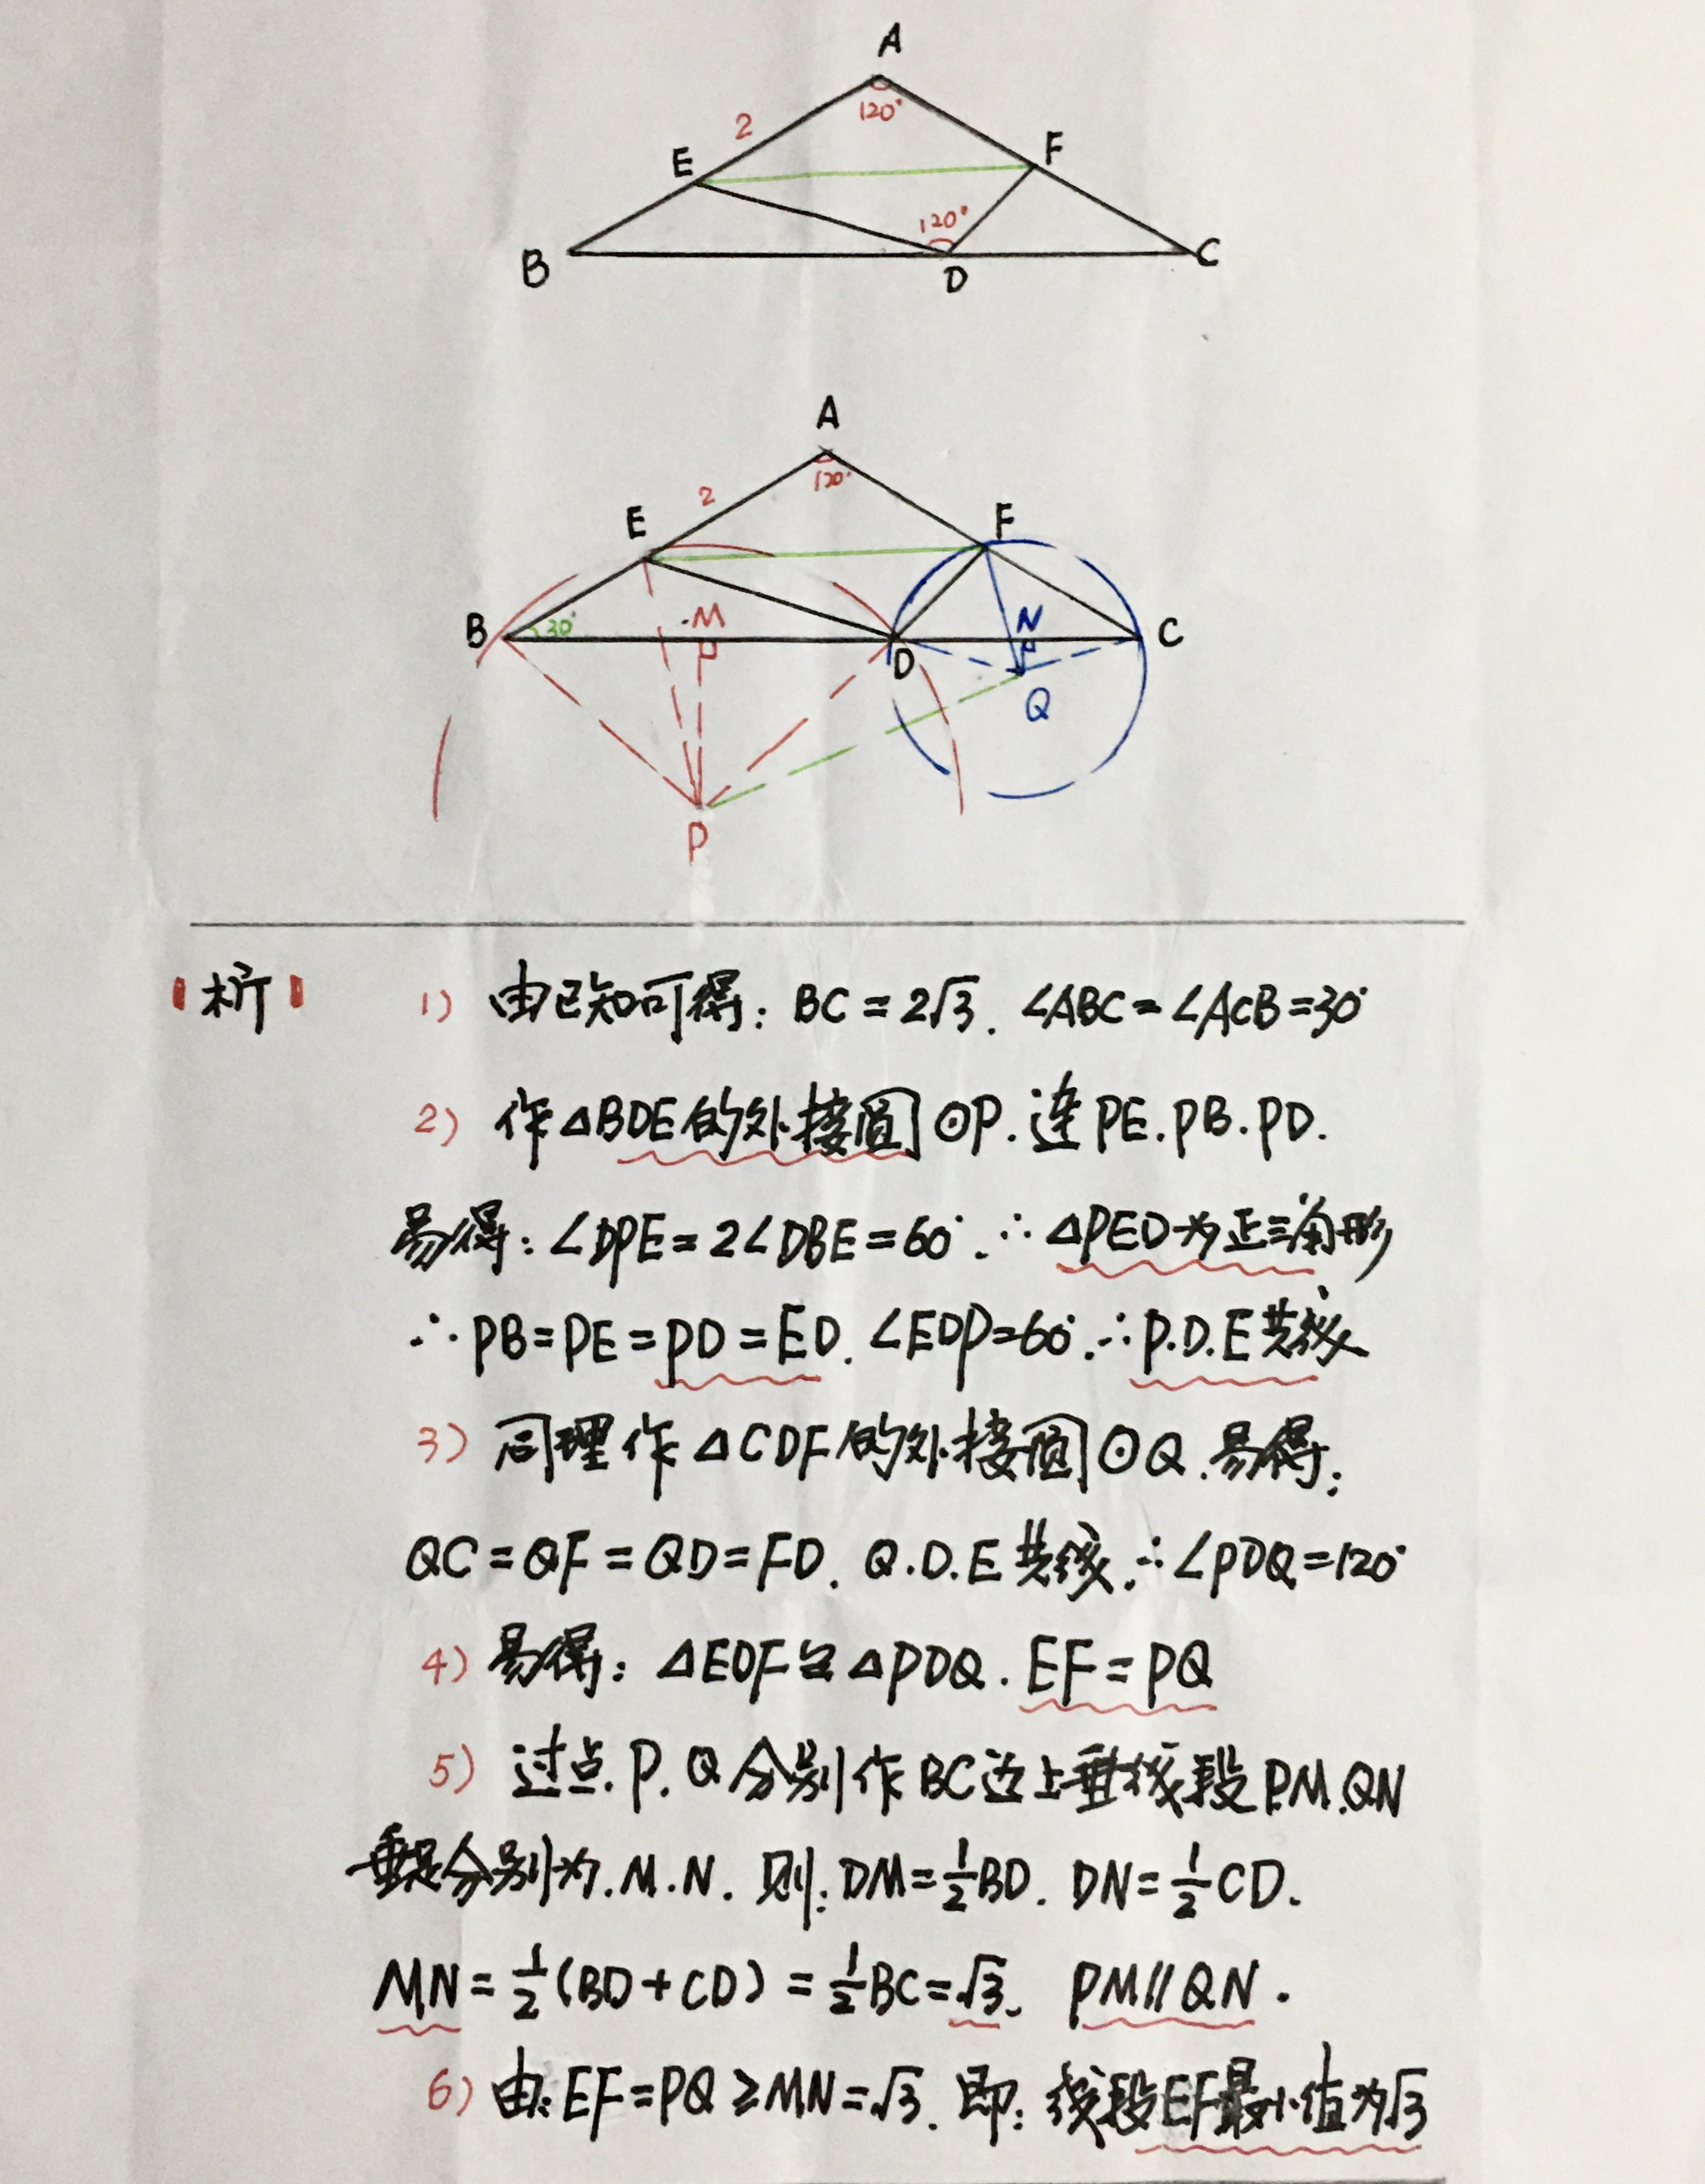 A
2
120°
E
F
120°
B
D
C
A
2
120°
E
F
B
30°
M
N
C
D
Q
P
析
1) 由已知可得: BC=2√3. ∠ABC=∠ACB=30°
2) 作△BDE的外接圆⊙P. 连PE.PB.PD.
易得: ∠DPE=2∠DBE=60°. ∴△PED为正三角形
∴PB=PE=PD=ED. ∠EDP=60°. ∴P.D.E共线
3) 同理作△CDF的外接圆⊙Q. 易得:
QC=QF=QD=FD. Q.D.E共线. ∴∠PDQ=120°
4) 易得: △EDF≌△PDQ. EF=PQ
5) 过点.P.Q分别作BC边上垂线段PM.QN
垂足分别为.M.N. 则: DM=1/2BD. DN=1/2CD.
MN=1/2(BD+CD)=1/2BC=√3. PM∥QN.
6) 由: EF=PQ≥MN=√3. 即: 线段EF最小值为√3